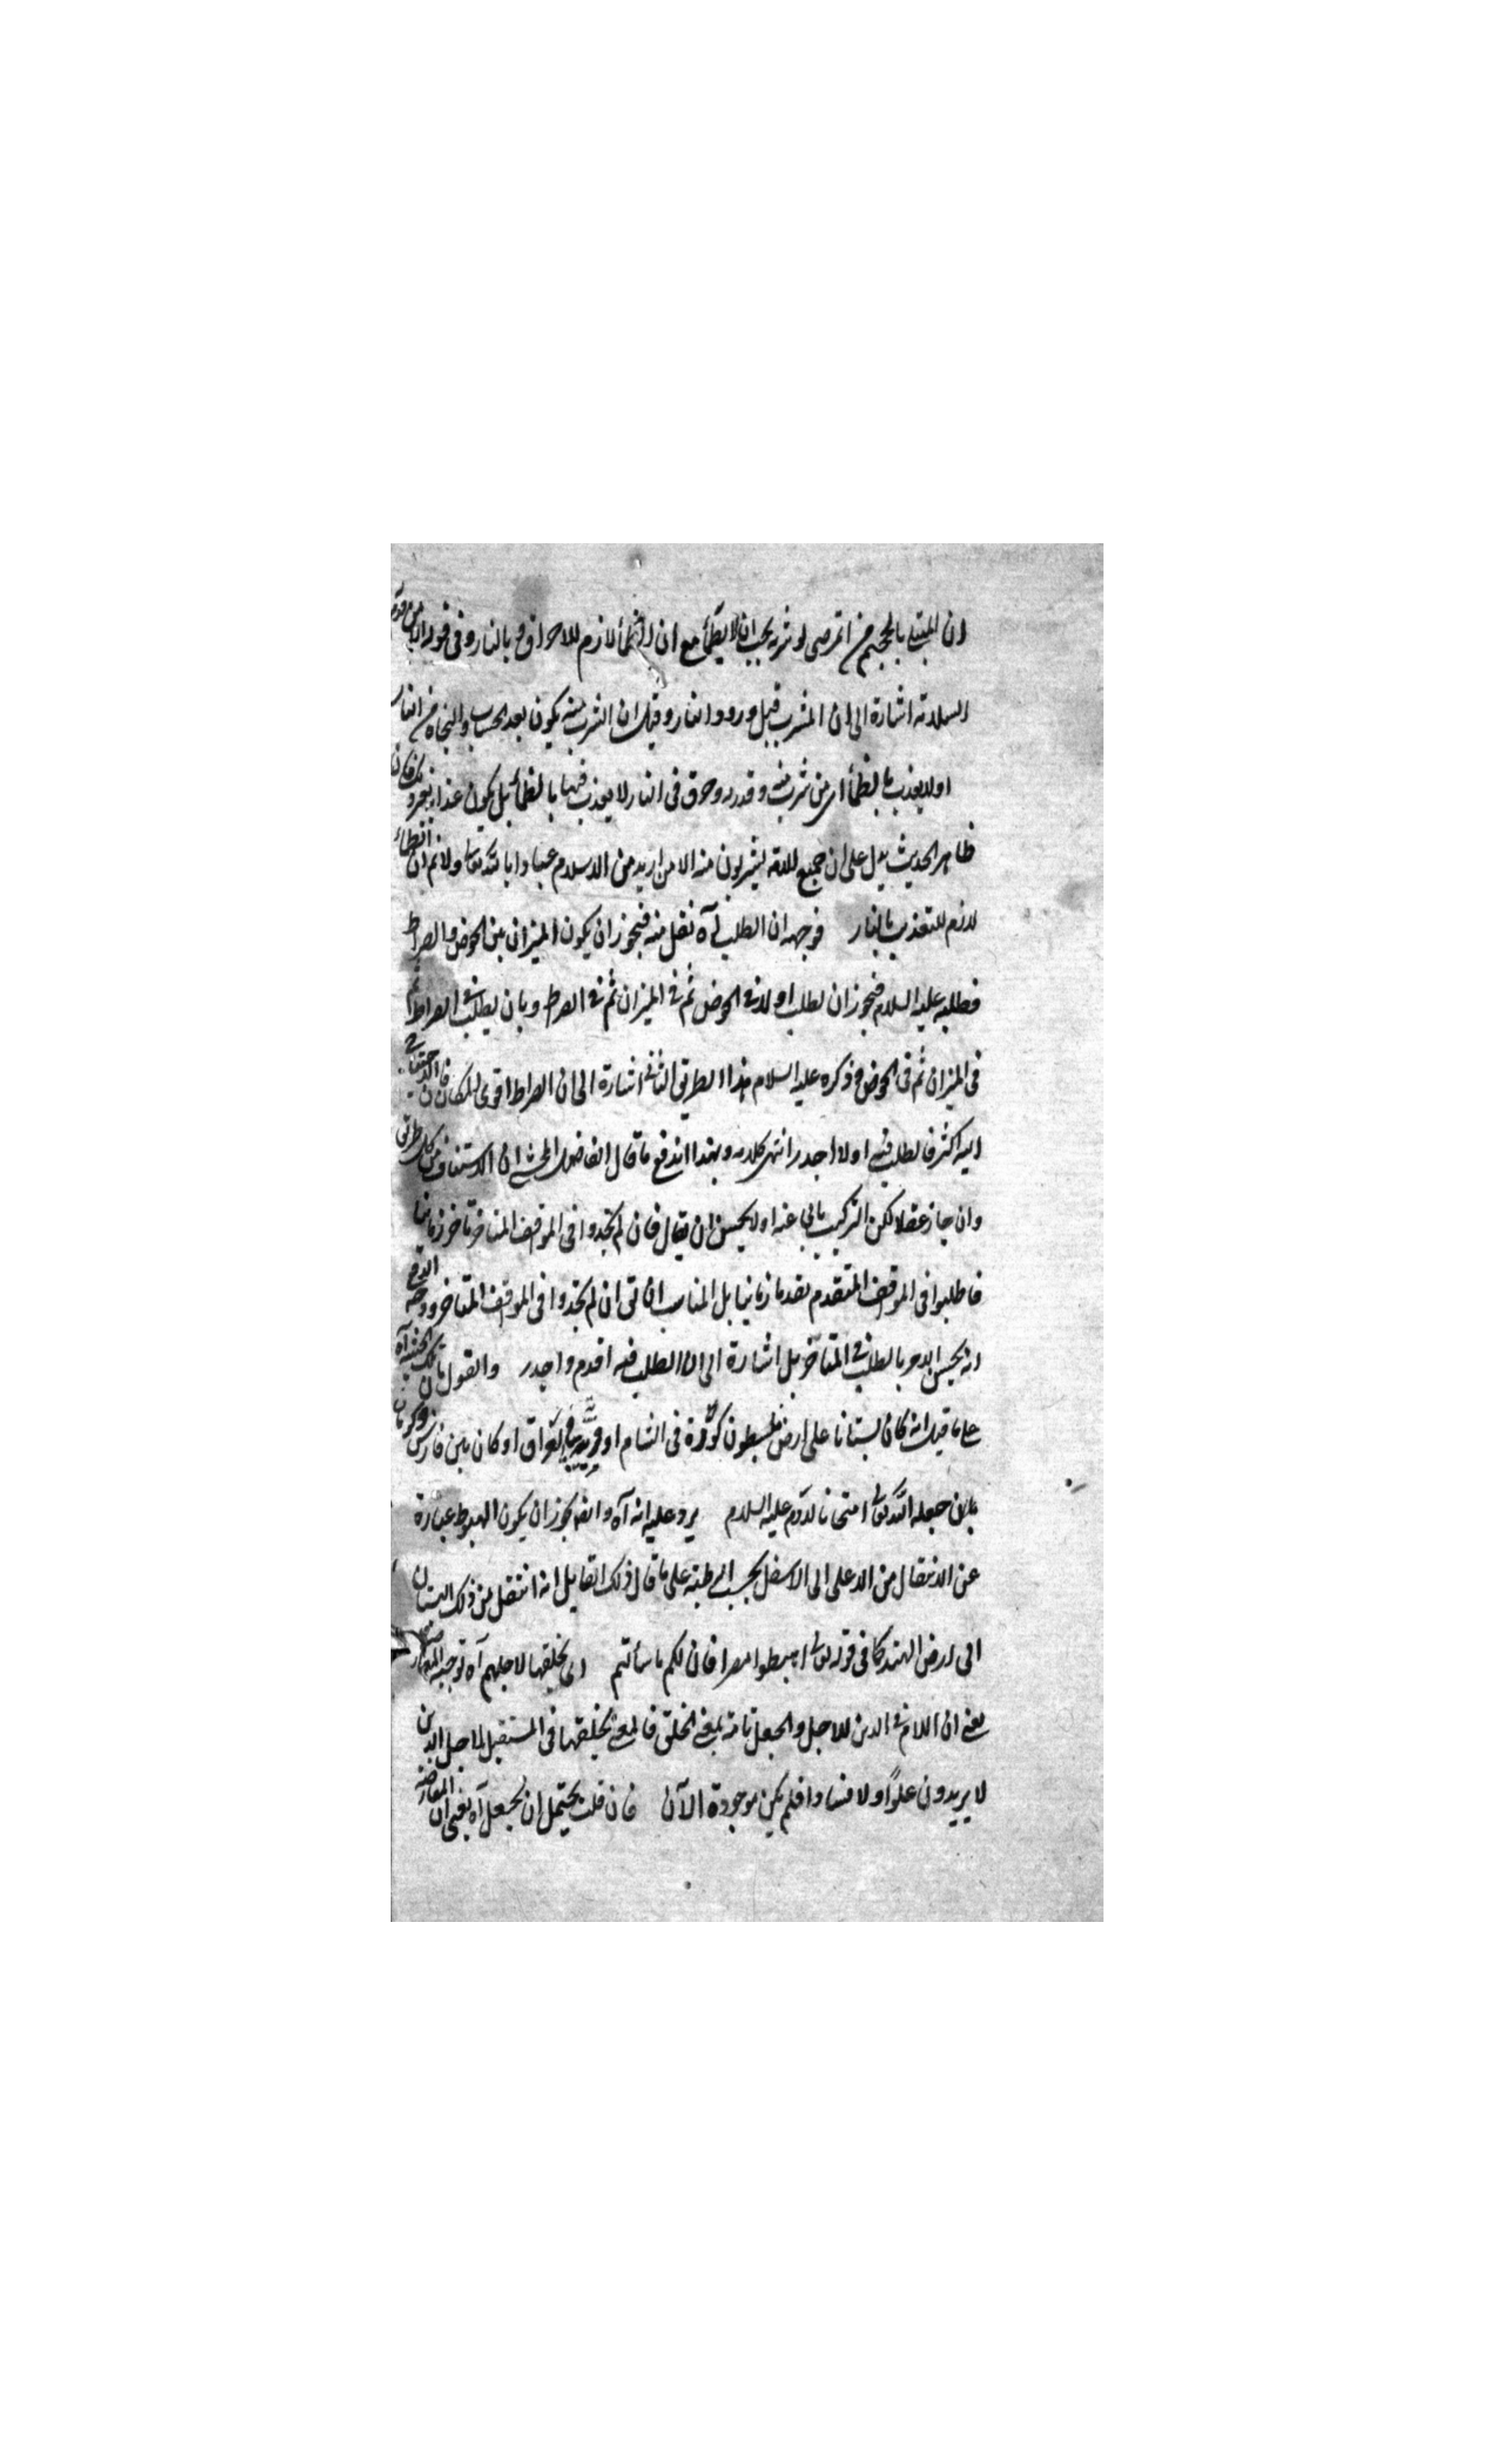 ان المبتلى بالجحيم من امتى لو شربه يجب ان لا يظمأ مع ان الظمأ لازم للاحراق بالنار وفى قوله
السلامة اشارة الى ان المشرب قبل ورود النار وقيل ان الشرب منه يكون بعد الحساب والنجاة من النار
او لا يعذب بالظمأ اى من شرب منه وقدر دوحرق فى النار لا يعذب فيها بالظمأ بل يكون عذابه بغيره
ظاهر الحديث يدل على ان جميع الامة يشربون منه الا من ارتد من الاسلام عياذا بالله تعالى ولا نم ان الظمأ
لازم للتعذيب بالنار فوجهه ان الطلب آه نقل منه فيجوز ان يكون الميزان بين الحوض والصراط
فطلبه عليه السلام فيجوز ان يطلب اولا فى الحوض ثم فى الميزان ثم فى الصراط وبان يطلب فى الصراط ثم
فى الميزان ثم فى الحوض وذكره عليه السلام هذا الطريق الثانى اشارة الى ان الصراط اقوى المكان فان الاحتياج
اليه اكثر فالطلب فيه اولا اجدر انتهى كلامه وبهذا اندفع ما قال الفاضل المحشى ان الاستيناف من كل طرق
وان جاز عقلا لكن التركيب يابى عنه اولا يحسن ان يقال فان لم تجدوا فى الموقف المتاخر تاخر زمانيا
فاطلبوا فى الموقف المتقدم تقدما زمانيا بل المناسب ان يق ان لم تجدوا فى الموقف المتاخر ووجه الدفع
انه يحسن الامر بالطلب فى المتأخر بل اشارة الى ان الطلب فيه اقدم واجدر والقول بان تلك الجنة آه
على ما قيل انه كان بستانا على ارض فلسطون كورة فى الشام او قرية فى العراق او كان بين فارس وكرمان
بان جعله الله تعالى امتحانا لآدم عليه السلام يرد عليه انه آه وايضا يجوز ان يكون الهبوط عبارة
عن الانتقال من الاعلى الى الاسفل بحسب الرطبة على ما قال ذلك القايل انه انتقل من ذلك البستان
الى ارض الهند كما فى قوله تعالى اهبطوا مصرا فان لكم ما سألتم اى نخلقها لاجلهم آه توجيه المعارضة
يعنى ان اللام فى الذين للاجل والجعل تامة بمعنى الخلق فالمعنى نخلقها فى المستقبل لاجل الذين
لا يريدون علوًا ولا فسادا فلم يكن موجودة الآن فان قلت يحتمل ان نجعل آه يعنى ان المعارضة